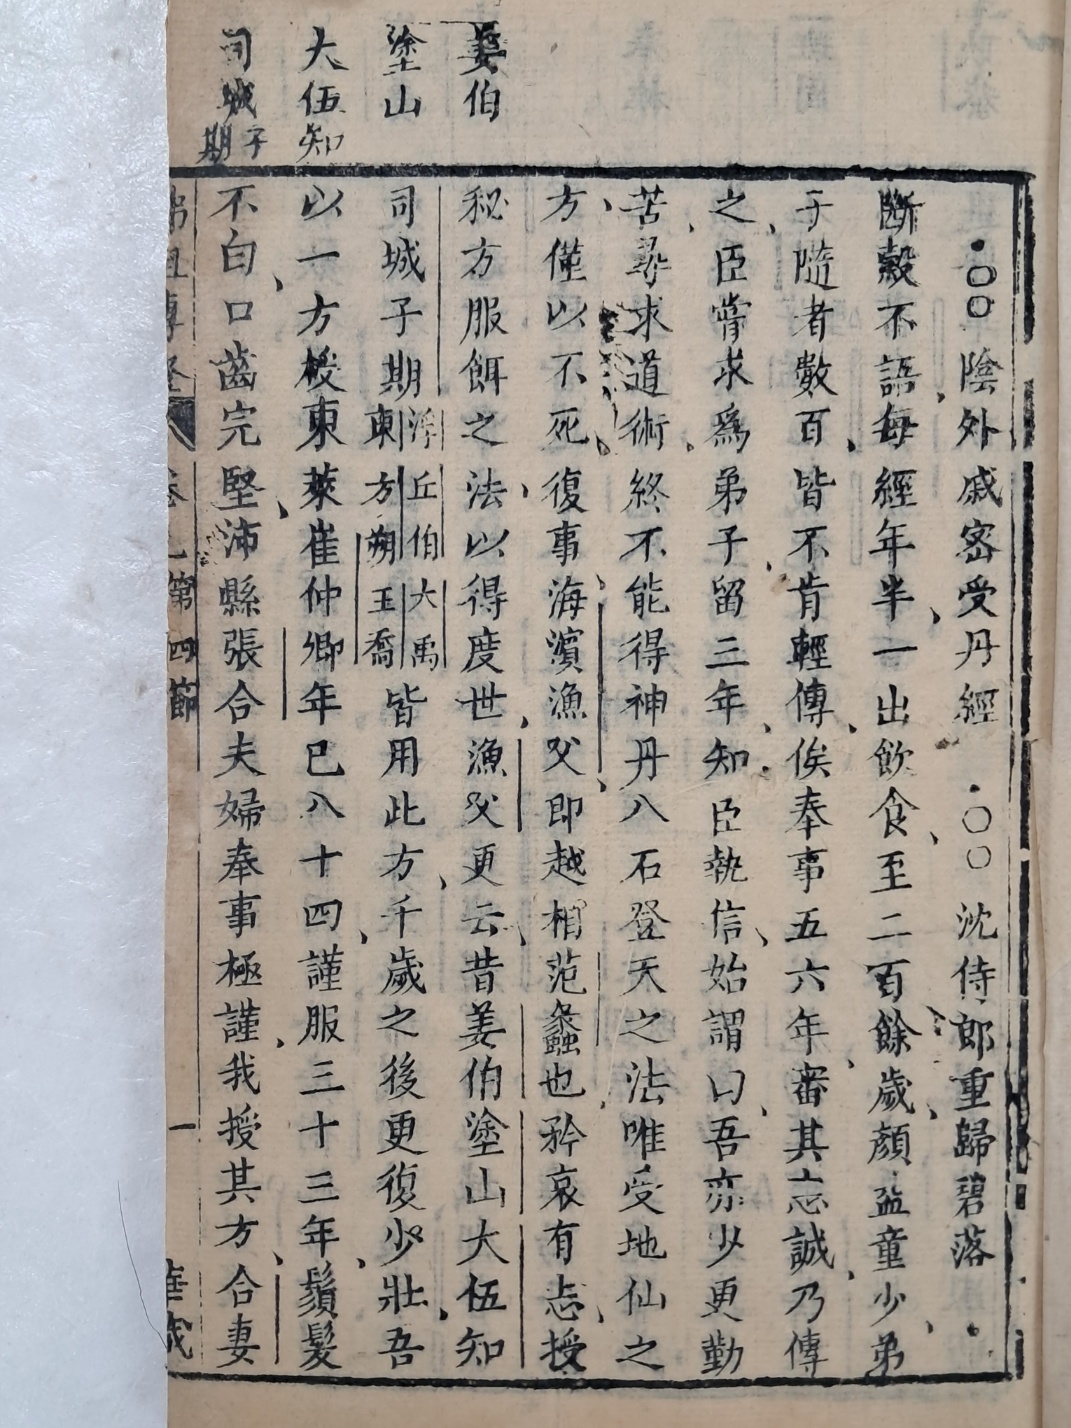 ○○陰外戚密受丹經　○○沈侍郎重歸碧落
斷穀不語每經年半一出飲食至二百餘歲顏益童少弟
子隨者數百皆不肯輕傳俟奉事五六年審其志誠乃傳
之臣嘗求為弟子留三年知臣執信始謂曰吾亦少更勤
苦尋求道術終不能得神丹八石登天之法唯受地仙之
方僅以不死復事海濱漁父即越相范蠡也矜哀有志授
姜伯
秘方服餌之法以得度世漁父更云昔姜伯塗山大伍知
塗山
司城子期浮丘伯大禹東方朔王喬皆用此方千歲之後更復少壯吾
大伍知
以一方授東萊崔仲卿年已八十四謹服三十三年鬚髮
司城子期
不白口齒完堅沛縣張合夫婦奉事極謹我授其方合妻
第四節
一